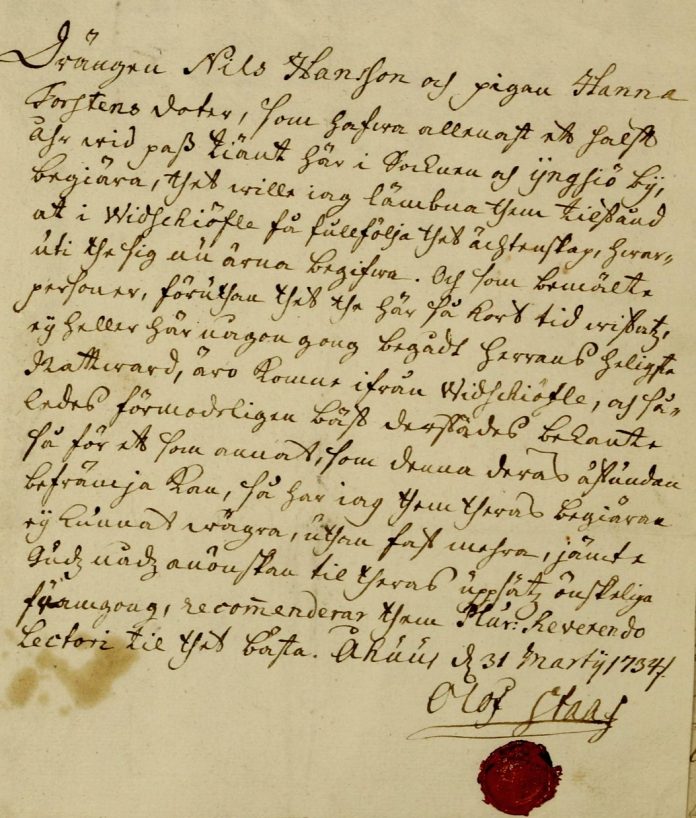 Drängen Nils Hansson och pigan Hanna
Torstens doter, som hafwa allenast ett halft
åhr wid paß tiänt här i Socknen och yngsiö by,
begiära, thet wille iag lämbna them tilstånd
at i Widschiöfle få fullfölja thet ächtenskap, hwar-
uti the sig nu ärna begifwa. Och som bemälte
personer, förüthan thet the här så kort tid wistatz,
ey heller här någon gong begådt Herrans heligste
Nattward, äro komne ifrån Widschiöfle, och så-
ledes förmodeligen bäst derstädes bekante
så för ett som annat, som denna deras åstundan
befrämja kan, så har iag them theras begiäran
ey kunnat wägra, uthan fast mehra, jämte
Gudz nådz anönskan til theras uppsåtz önskelige
framgong, recom̄enderar them Plur: Reverendo
Lectori til thet bästa. Åhuus d 31 Martij 1734.
Olof Staaf